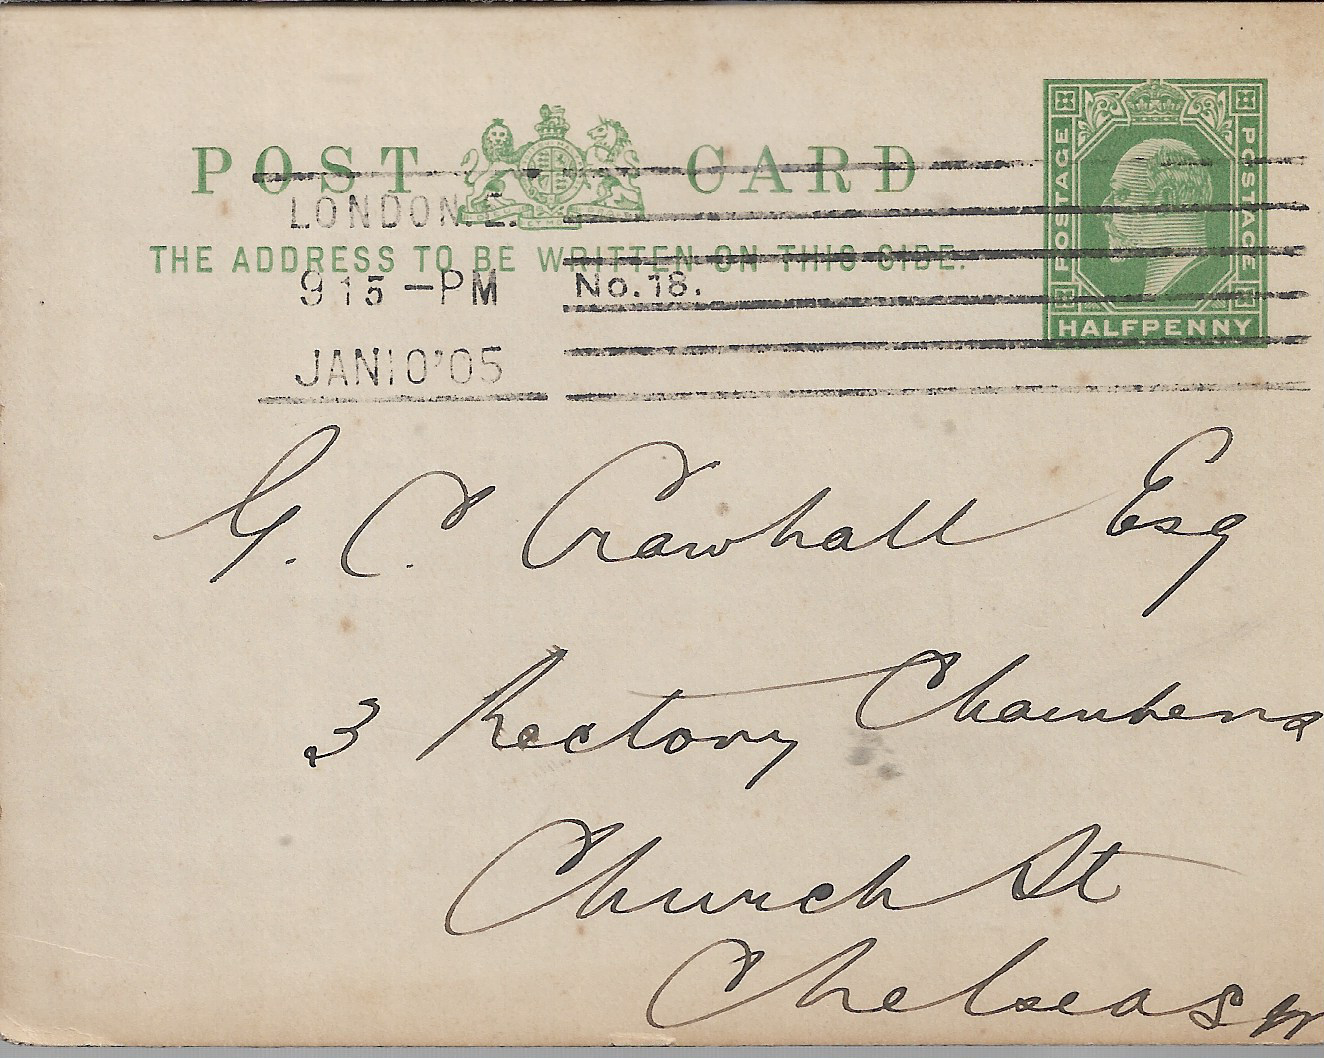 POST CARD
LONDON.E.
THE ADDRESS TO BE WRITTEN ON THIS SIDE.
9 15 – PM No.18.
JAN 10 '05
POSTAGE POSTAGE
HALFPENNY
G. C. Crawhall Esq
3 Rectory Chambers
Church St
Chelsea S W